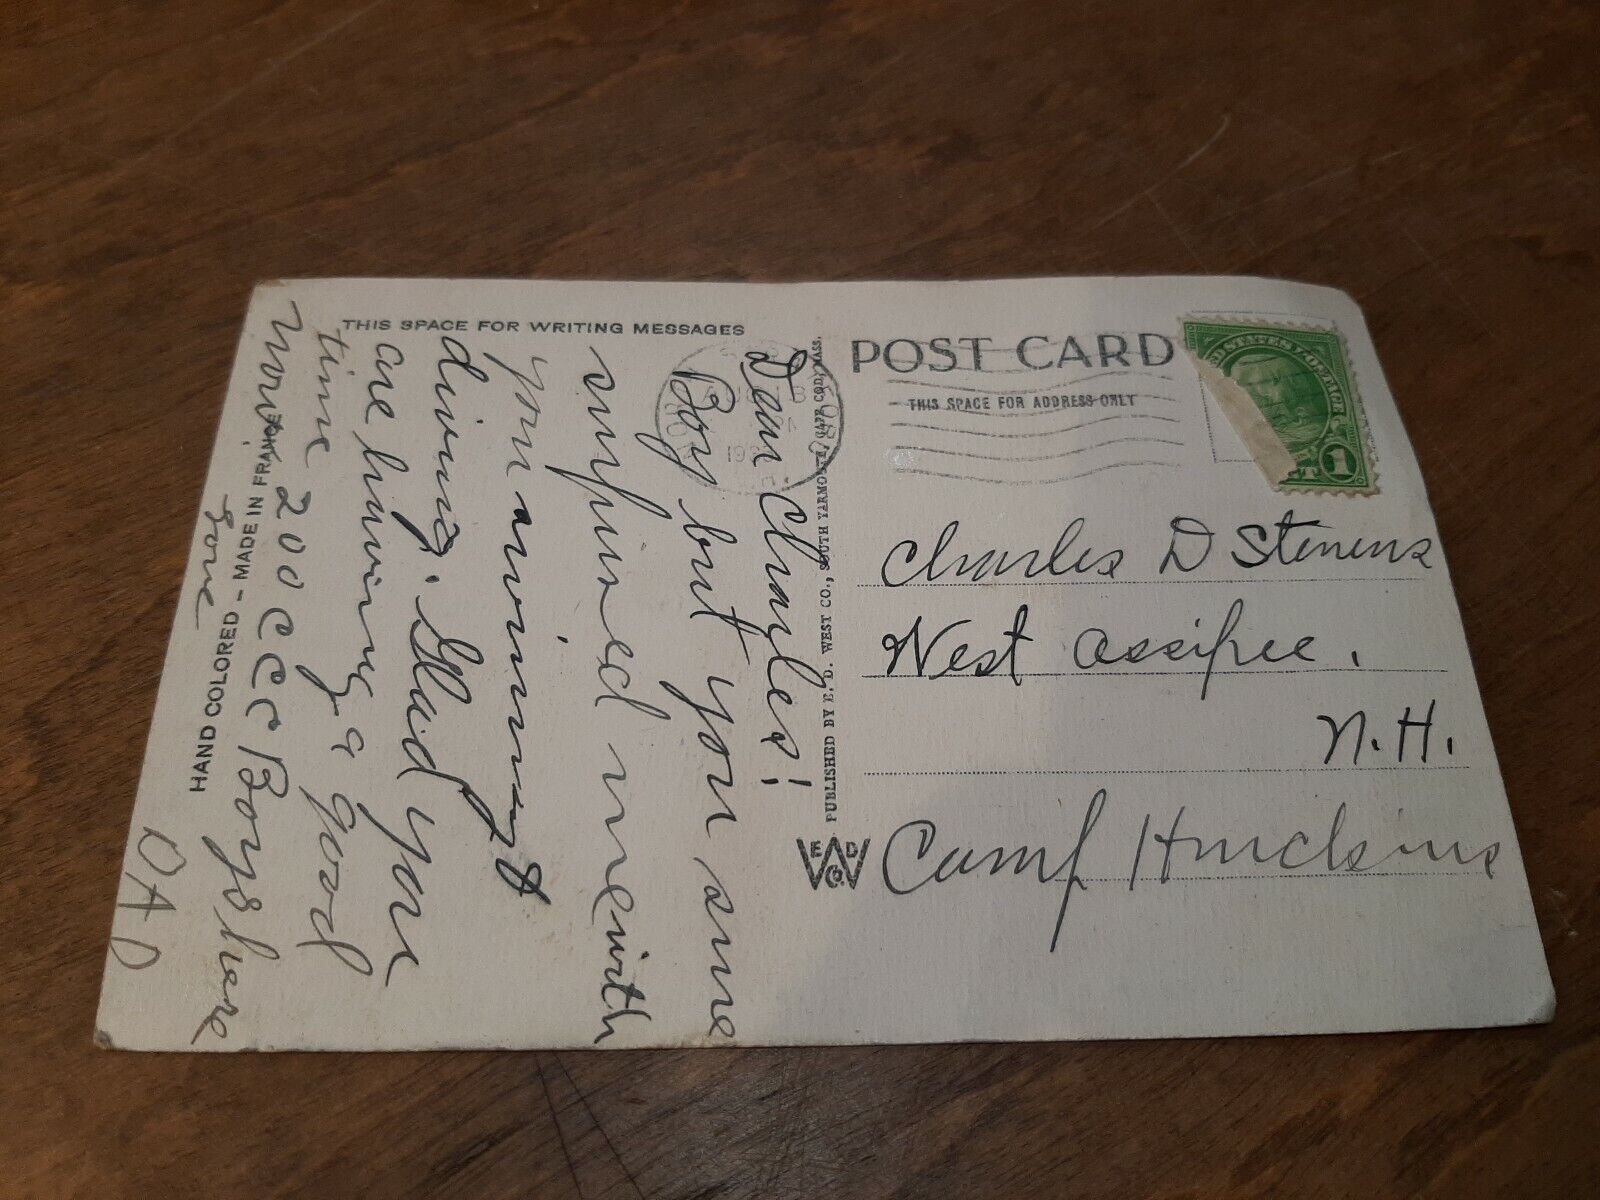 THIS SPACE FOR WRITING MESSAGES
Dear Charles!
Boy but you sure
surprised me with
your swimming &
diving. Glad you
are having a good
time 200 CCC Boys here
now
HAND COLORED - MADE IN FRANCE
DAD
PUBLISHED BY E. D. WEST CO., SOUTH YARMOUTH, CAPE COD, MASS.
E D
W
Co
POST CARD
THIS SPACE FOR ADDRESS ONLY
UNITED STATES POSTAGE
1
Charles D Stevens
West Ossipee.
N.H.
Camp Huckins